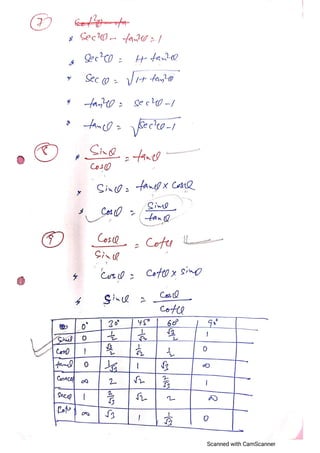 7
* Sec²θ - tan²θ = 1
* Sec²θ = 1 + tan²θ
* Sec θ = √1 + tan²θ
* tan²θ = Sec²θ - 1
* tan θ = √Sec²θ - 1
8
* Sinθ / Cosθ = tanθ
* Sinθ = tanθ x Cosθ
* Cosθ = Sinθ / tanθ
9
Cosθ / Sinθ = Cotθ
* Cosθ = Cotθ x Sinθ
* Sinθ = Cosθ / Cotθ
0° 30° 45° 60° 90°
Sinθ 0 1/2 1/√2 √3/2 1
Cosθ 1 √3/2 1/√2 1/2 0
tanθ 0 1/√3 1 √3 ∞
Cosecθ ∞ 2 √2 2/√3 1
Secθ 1 2/√3 √2 2 ∞
Cotθ ∞ √3 1 1/√3 0
Scanned with CamScanner